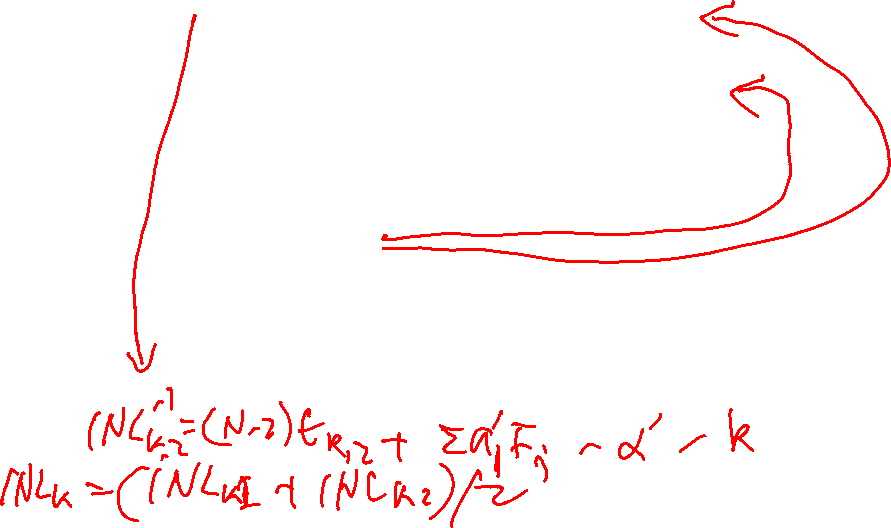 INL'k,2 = (N-2)εk,2 + Σa'jFj - α' - k
INLk = (INLk1 + INLk2)/2